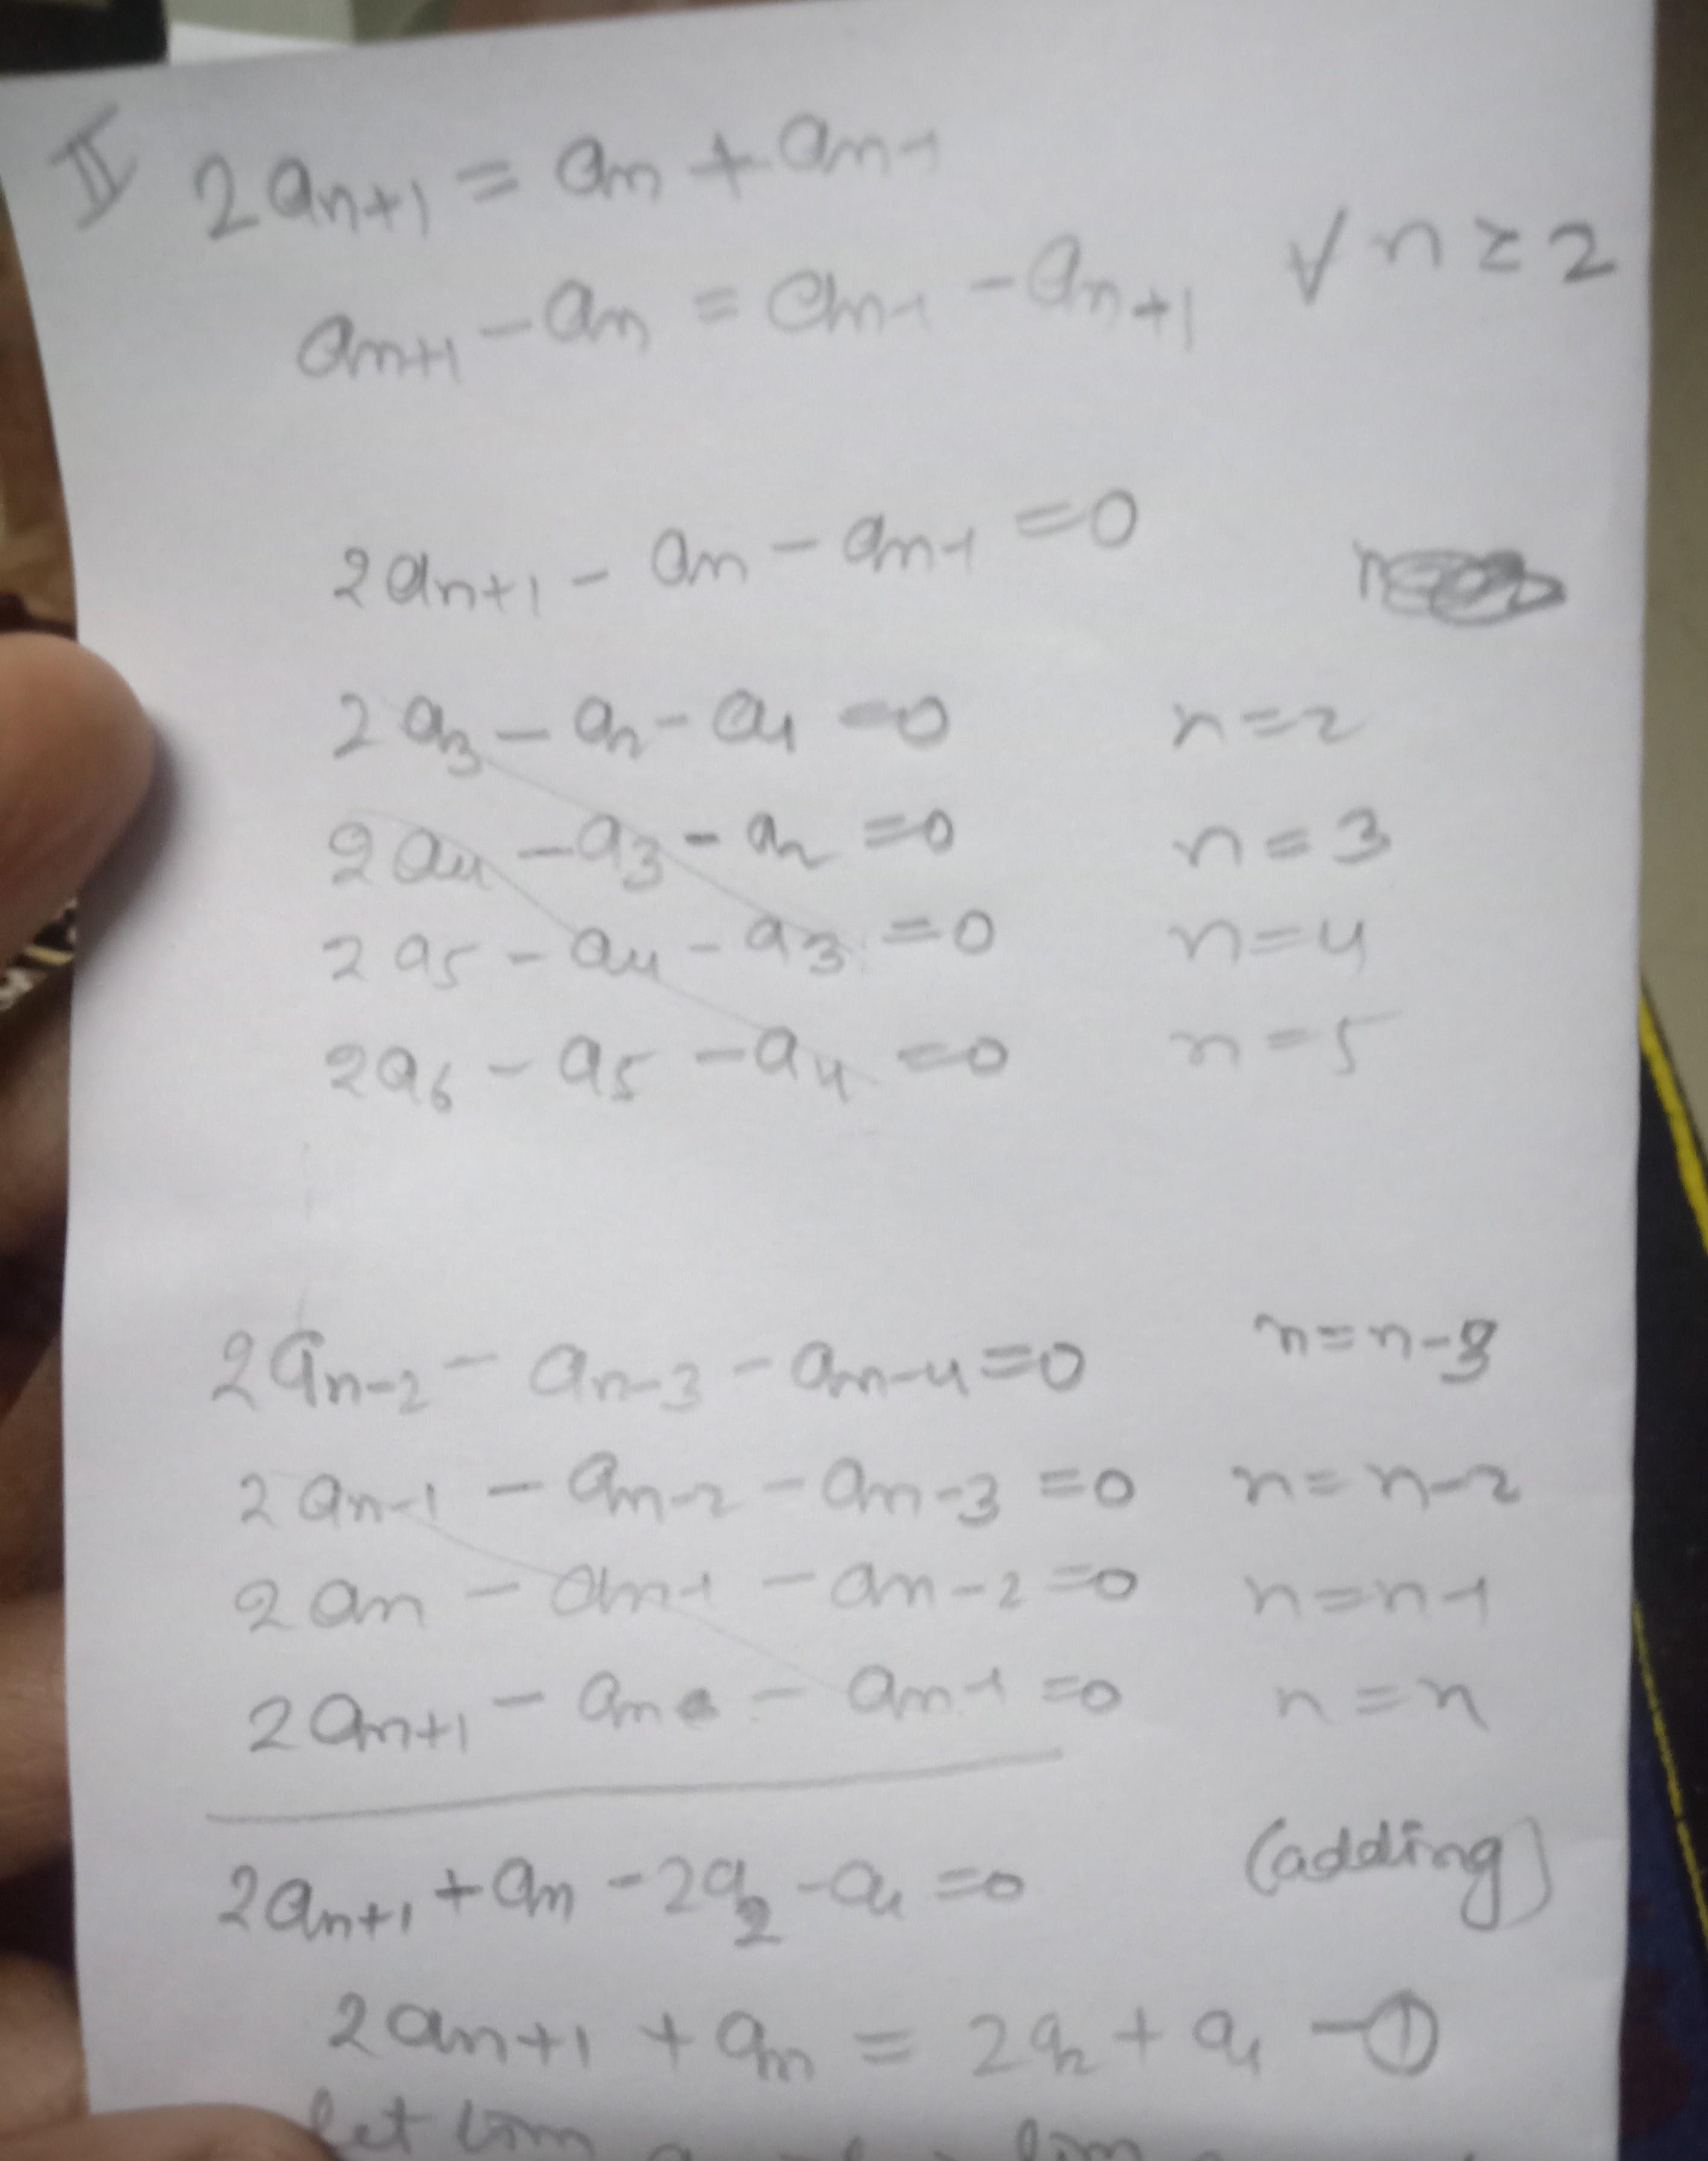 II 2aₙ₊₁ = aₙ + aₙ₋₁
aₙ₊₁ - aₙ = aₙ₋₁ - aₙ₊₁ ∀ n ≥ 2
2aₙ₊₁ - aₙ - aₙ₋₁ = 0
2a₃ - a₂ - a₁ = 0 n = 2
2a₄ - a₃ - a₂ = 0 n = 3
2a₅ - a₄ - a₃ = 0 n = 4
2a₆ - a₅ - a₄ = 0 n = 5
2aₙ₋₂ - aₙ₋₃ - aₙ₋₄ = 0 n = n-3
2aₙ₋₁ - aₙ₋₂ - aₙ₋₃ = 0 n = n-2
2aₙ - aₙ₋₁ - aₙ₋₂ = 0 n = n-1
2aₙ₊₁ - aₙ - aₙ₋₁ = 0 n = n
2aₙ₊₁ + aₙ - 2a₂ - a₁ = 0 (adding)
2aₙ₊₁ + aₙ = 2a₂ + a₁ - ①
let lim